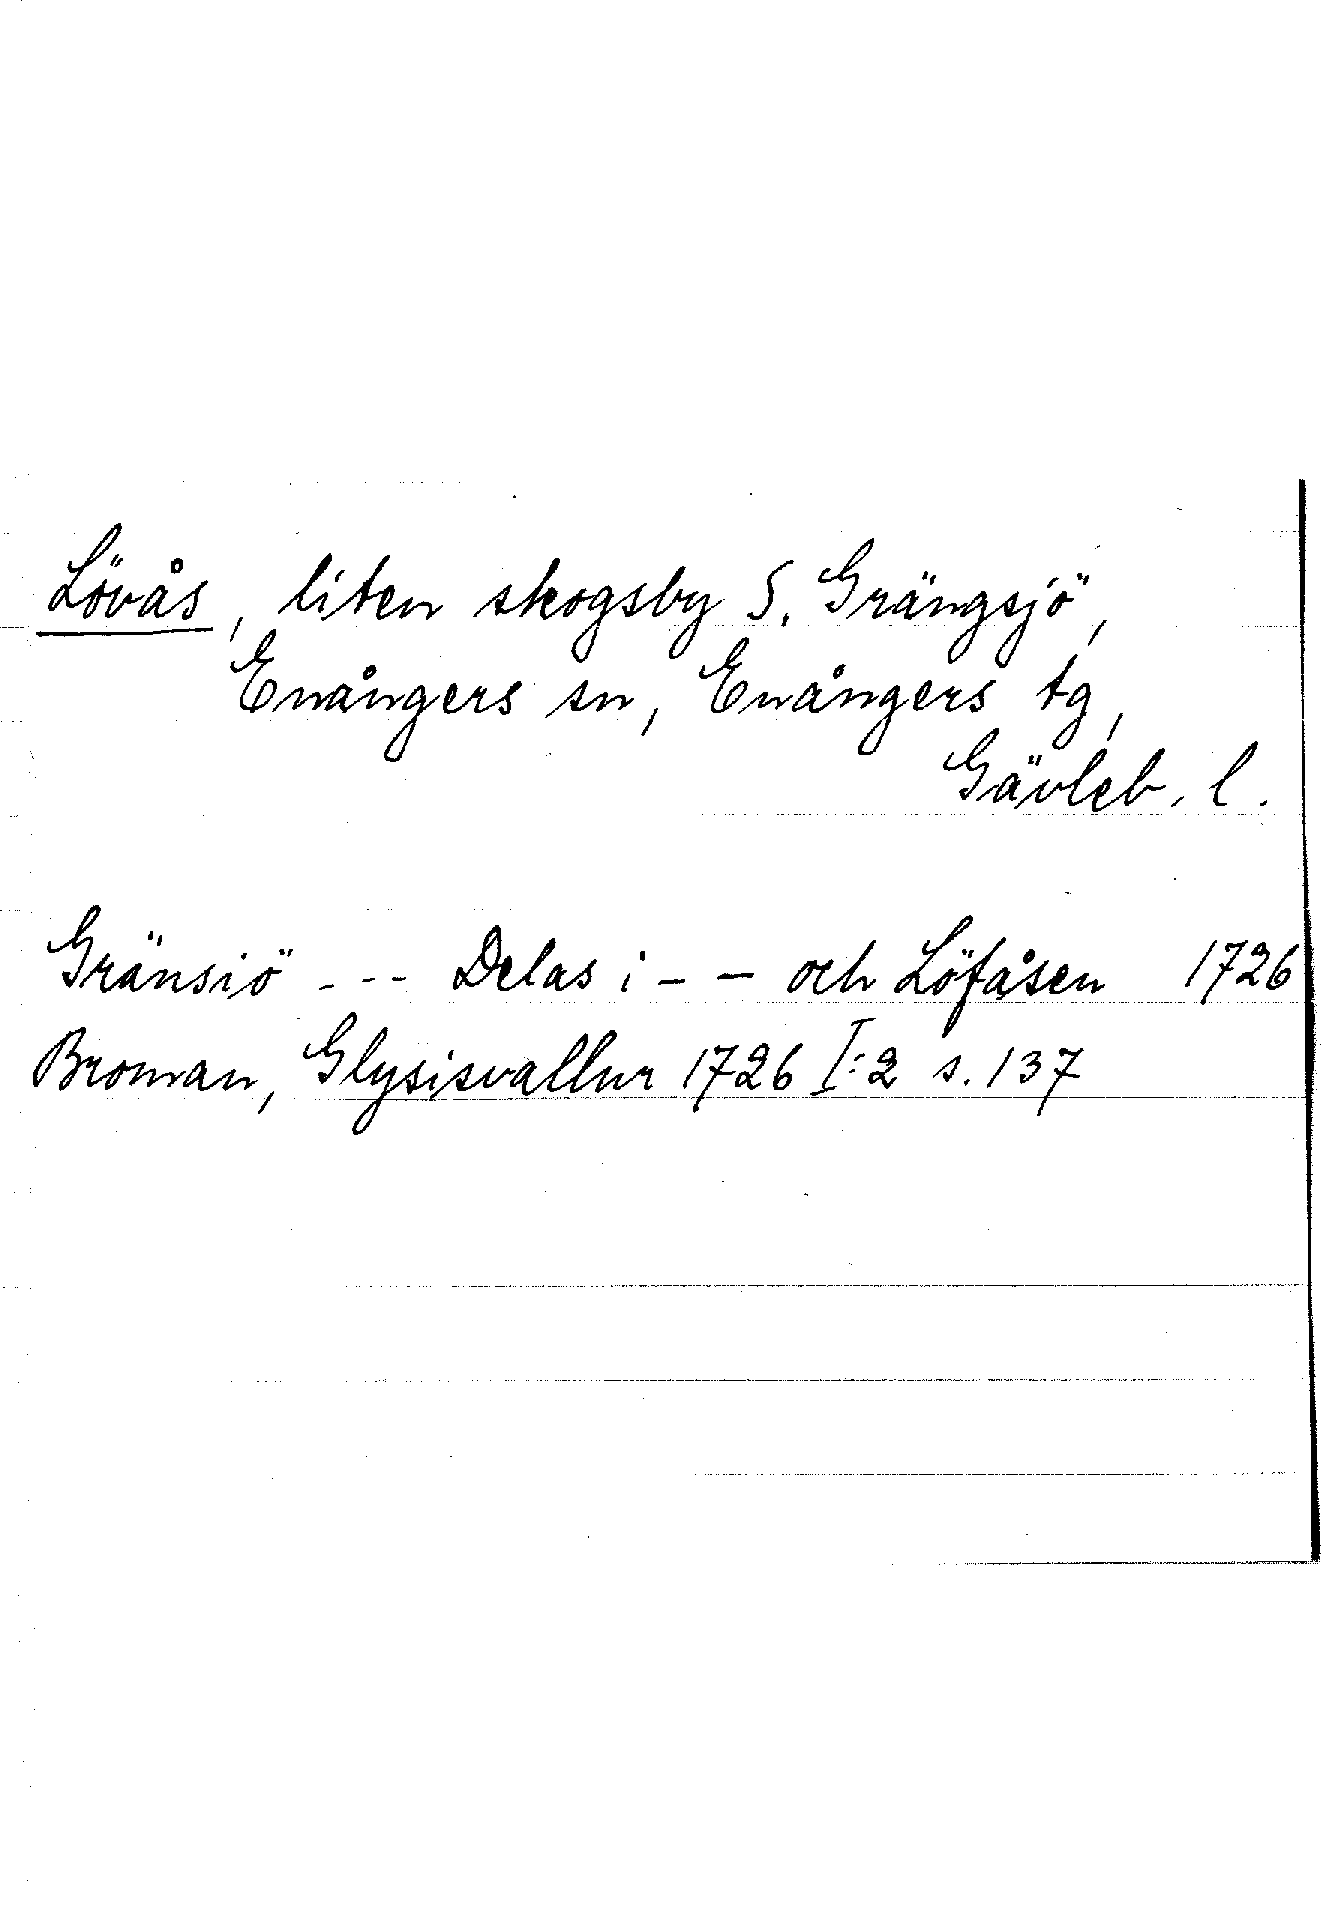 Lövås, liten skogsby S. Grängsjö,
Enångers sn, Enångers tg,
Gävleb. l.
Gränsiö --- Delas i -- och Löfåsen 1726
Broman, Glysisvallur 1726 I:2 s. 137